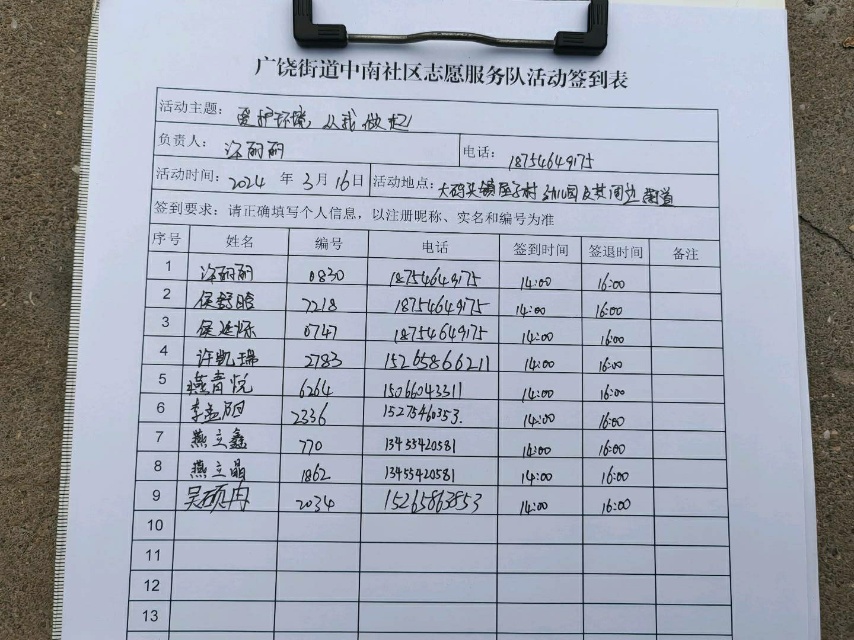 广饶街道中南社区志愿服务队活动签到表
活动主题: 爱护环境,从我做起
负责人: 涂丽丽 电话: 18754649175
活动时间: 2024 年 3 月 16 日 活动地点: 大码头镇 村幼儿园及其周边街道
签到要求:请正确填写个人信息,以注册昵称、实名和编号为准
序号 姓名 编号 电话 签到时间 签退时间 备注
1 涂丽丽 0830 18754649175 14:00 16:00
2 7218 18754649175 14:00 16:00
3 0747 18754649175 14:00 16:00
4 许凯瑞 2783 15265866211 14:00 16:00
5 燕青悦 6264 15066043311 14:00 16:00
6 2336 15275460353. 14:00 16:00
7 燕立鑫 770 13455420581 14:00 16:00
8 燕立晶 1862 13455420581 14:00 16:00
9 吴硕冉 2034 15265863953 14:00 16:00
10
11
12
13